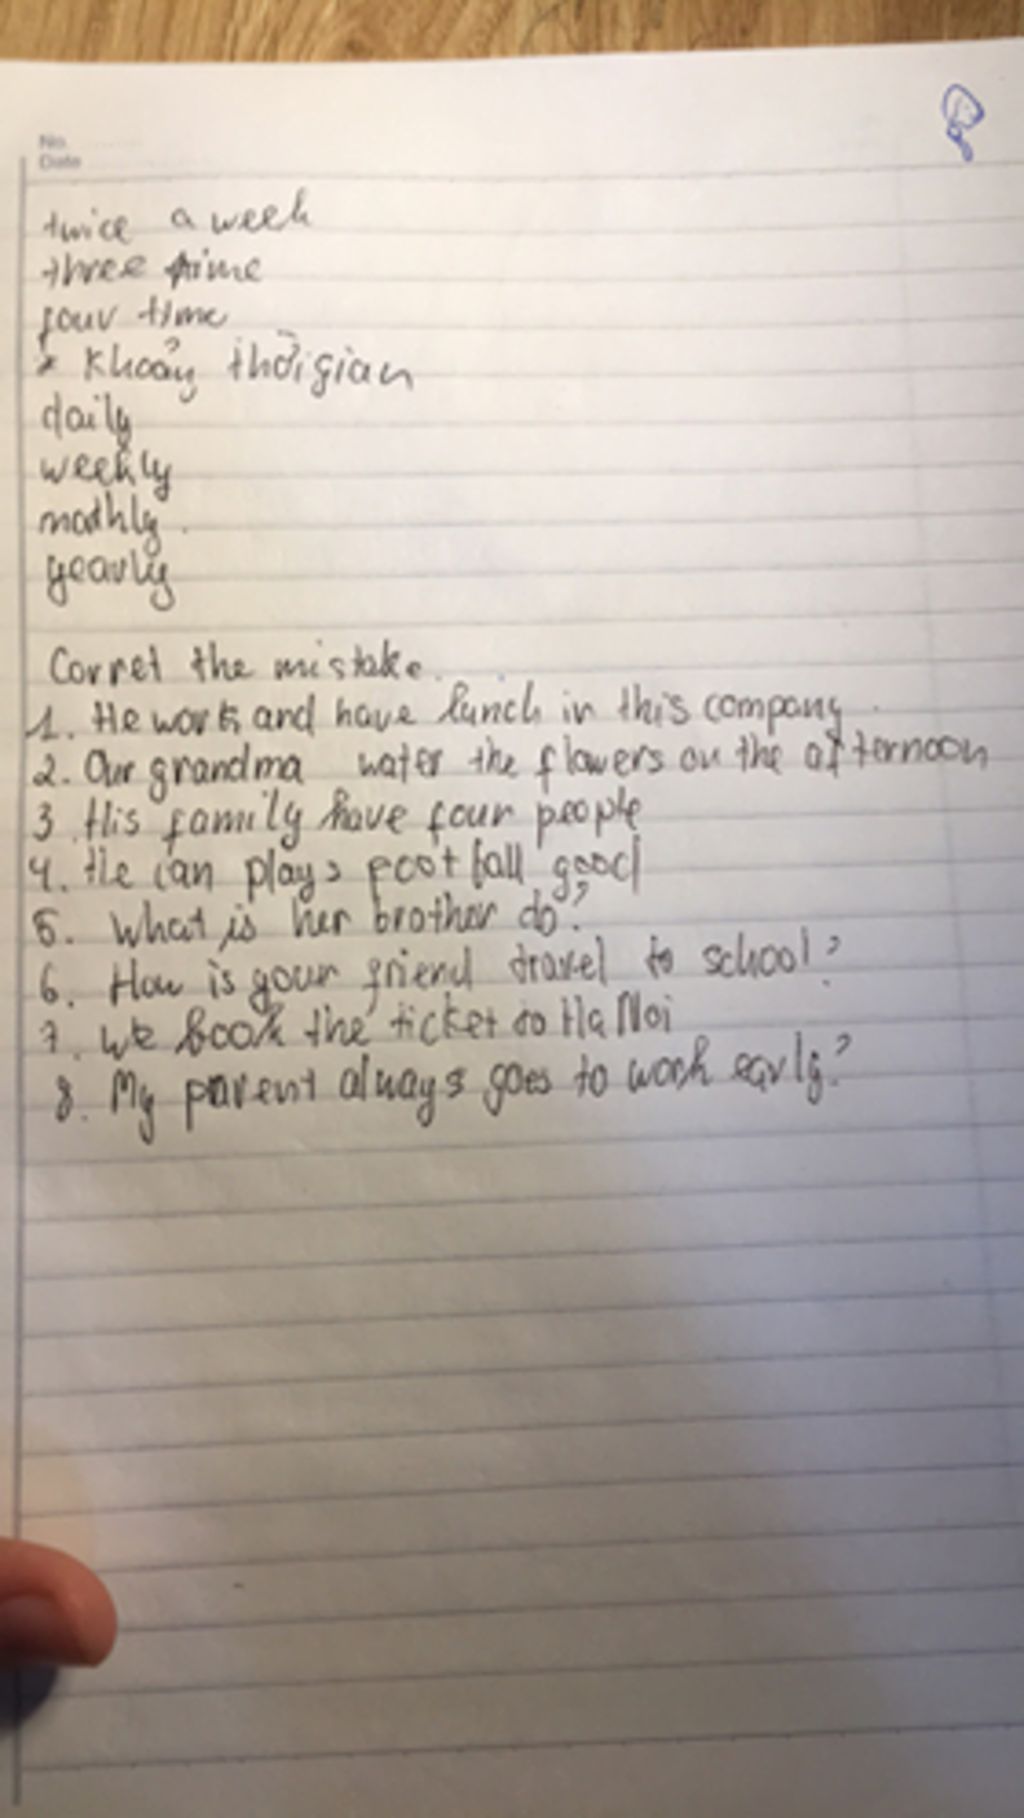 No.
Date
twice a week
three time
four time
* Khoảng thời gian
daily
weekly
mothly.
yearly
Corret the mistake.
1. He work and have lunch in this company.
2. Our grandma water the flowers on the afternoon
3. His family have four people
4. He can plays football good
5. What is her brother do?
6. How is your friend travel to school?
7. We book the ticket to Ha Noi
8. My parent always goes to work early?